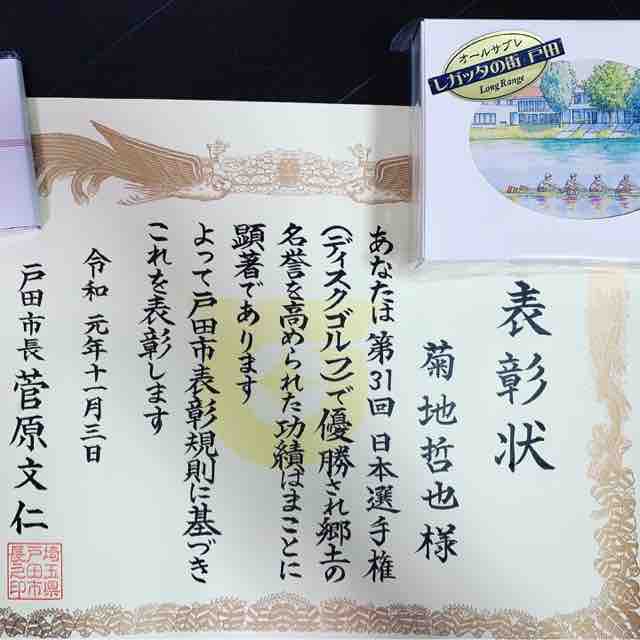 オールサブレ
レガッタの街 戸田
Long Range
表彰状
菊地哲也様
あなたは第31回日本選手権
(ディスクゴルフ)で優勝され郷土の
名誉を高められた功績はまことに
顕著であります
よって戸田市表彰規則に基づき
これを表彰します
令和元年十一月三日
戸田市長 菅原文仁
埼玉県
戸田市
長之印